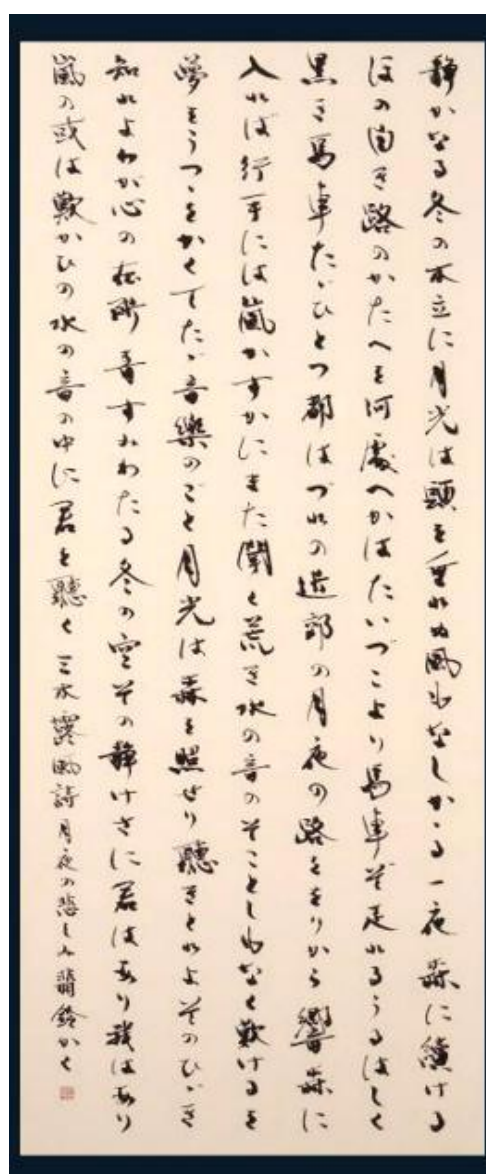 静かなる冬の木立に月光は頭を垂れぬ風もなしかゝる一夜森に續ける
ほの白き路のかたへを何處へかはたいづこより馬車ぞ走れるうるはしく
黒き馬車たゞひとつ郡はづれの遊部の月夜の路をりから響森に
入れば行手には嵐かすかにまた聞く荒き水の音のそことしもなく歎けるを
夢をうつゝをかくてたゞ音樂のごと月光は森を照せり聽きとれよそのひゞき
知れよわが心の在所音すみわたる冬の空その静けさに君はあり我はあり
嵐の或は歎かひの水の音の中に君を聽く 三木露風詩 月夜の悲しみ 翡鈴かく